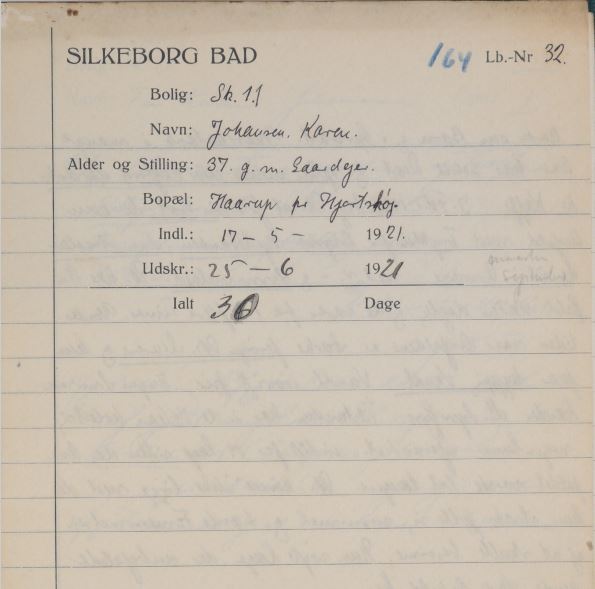 SILKEBORG BAD 164 Lb.-Nr 32.
Bolig: Sk. 11
Navn: Johansen. Karen.
Alder og Stilling: 37. g. m. Gaardejer.
Bopæl: Haarup pr Hjortshøj.
Indl.: 17 - 5 - 1921.
Udskr.: 25 - 6 1921
Ialt 30 Dage